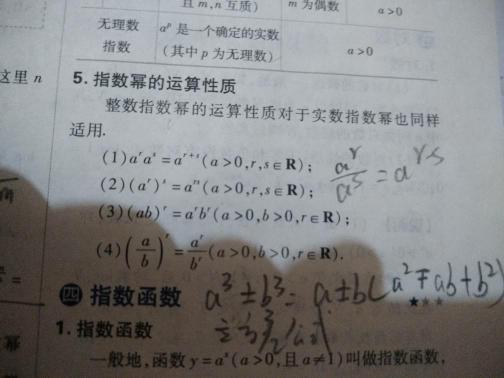 且m,n互质) m为偶数 a>0
无理数
指数
aᵖ是一个确定的实数
(其中p为无理数)
a>0
这里n
5. 指数幂的运算性质
整数指数幂的运算性质对于实数指数幂也同样
适用.
(1)aʳaˢ=aʳ⁺ˢ(a>0,r,s∈R);
(2)(aʳ)ˢ=aʳˢ(a>0,r,s∈R);
aʳ/aˢ=aʳ⁻ˢ
(3)(ab)ʳ=aʳbʳ(a>0,b>0,r∈R);
(4)(a/b)ʳ=aʳ/bʳ(a>0,b>0,r∈R).
a³±b³=a±b(a²∓ab+b²)
四 指数函数 ★★★
1. 指数函数
一般地,函数y=aˣ(a>0,且a≠1)叫做指数函数,